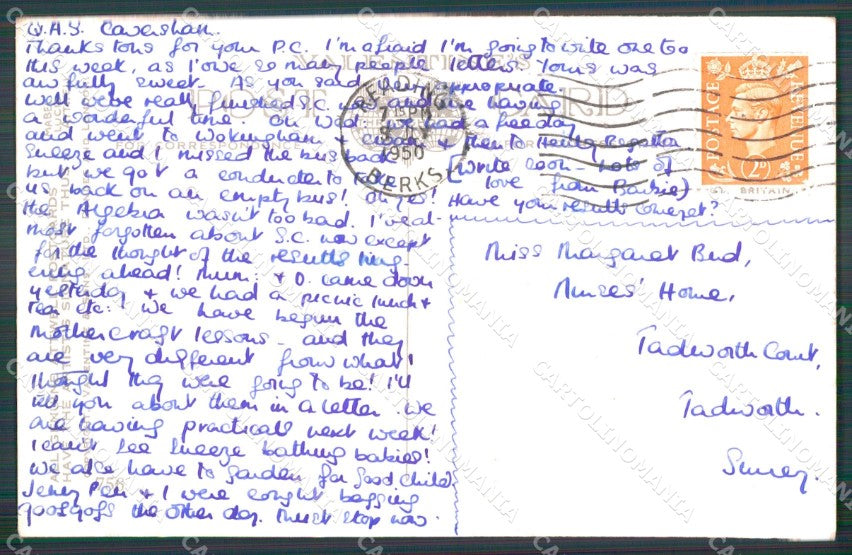 Q.A.S. Caversham.
Thanks tons for your P.C. I'm afraid I'm going to write one too
this week, as I owe so many people letters. Yours was
awfully sweet. As you said very appropriate
Well we've really finished S.C. now and are having
a wonderful time. On Wed. we had a free day
and went to Wokingham & then to Henley Regatta
Sneeze and I missed the bus back
but we got a conductor to take
us back on an empty bus! Oh yes!
the Algebra wasn't too bad. I've al-
most forgotten about S.C. now except
for the thought of the results
ahead! Mum: & D. came down
yesterday & we had a picnic lunch &
tea etc: We have begun the
mothercraft lessons - and they
are very different from what I
thought they were going to be! I'll
tell you about them in a letter. We
are having practicals next week!
I can't see Sneeze bathing babies!
We also have to garden for good child.
Jenny Pen & I were caught bagging
googofs the other day. Must stop now.
(Write soon - Lots of
love from Barbie)
Have your results come yet?
Miss Margaret Bird,
Nurses' Home,
Tadworth Court,
Tadworth.
Surrey.
POST CARD
FOR CORRESPONDENCE
READING
7 15 PM
1950
BERKS
POSTAGE REVENUE
2D
BRITAIN
ALL GENUINE ATTWELL POSTCARDS
HAVE THE ARTIST'S SIGNATURE THUS
CARTOLINOMANIA